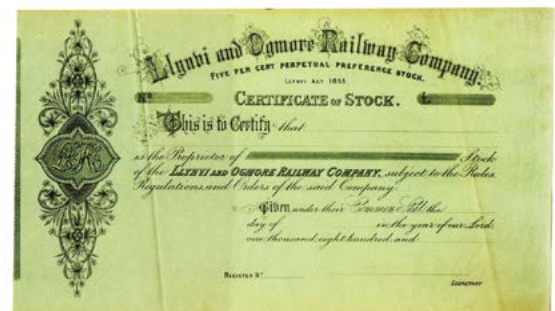 Llynvi and Ogmore Railway Company.
FIVE PER CENT PERPETUAL PREFERENCE STOCK.
LLYNVI ACT 1855
No £
CERTIFICATE OF STOCK.
This is to Certify that
is the Proprietor of Stock
of the LLYNVI AND OGMORE RAILWAY COMPANY, subject to the Rules,
Regulations, and Orders of the said Company.
Given under their Common Seal the
day of in the year of our Lord
one thousand, eight hundred, and
REGISTER No
SECRETARY